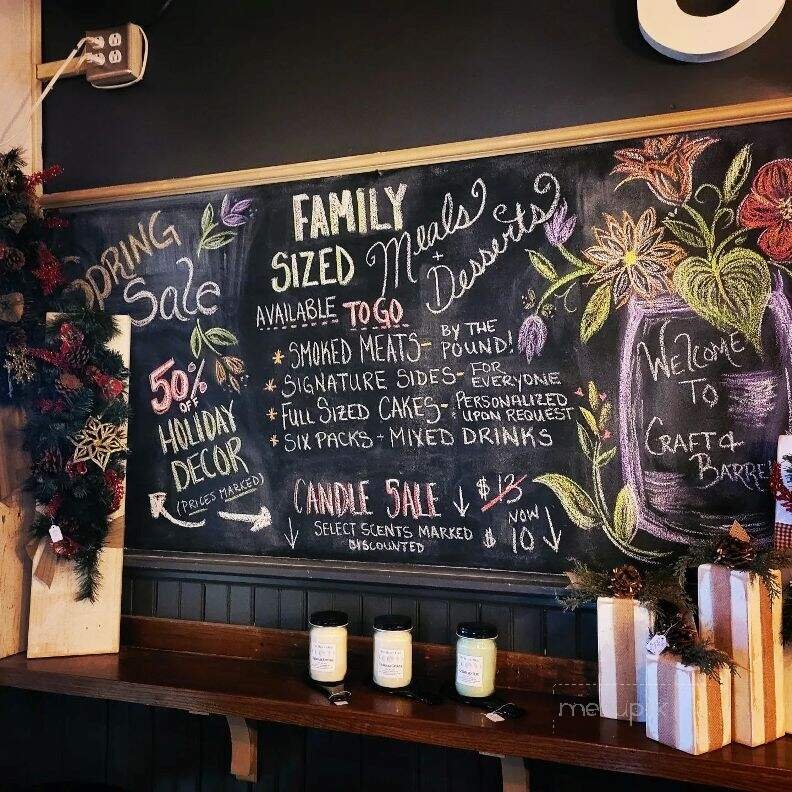 SPRING
Sale
50%
OFF
HOLIDAY
DECOR
(PRICES MARKED)
FAMILY
SIZED Meals + Desserts
AVAILABLE TO GO
* SMOKED MEATS - BY THE POUND!
* SIGNATURE SIDES - FOR EVERYONE
* FULL SIZED CAKES - PERSONALIZED UPON REQUEST
* SIX PACKS + MIXED DRINKS
CANDLE SALE ↓ $13
SELECT SCENTS MARKED
DISCOUNTED
NOW
$10
WELCOME
TO
CRAFT &
BARREL
menupix